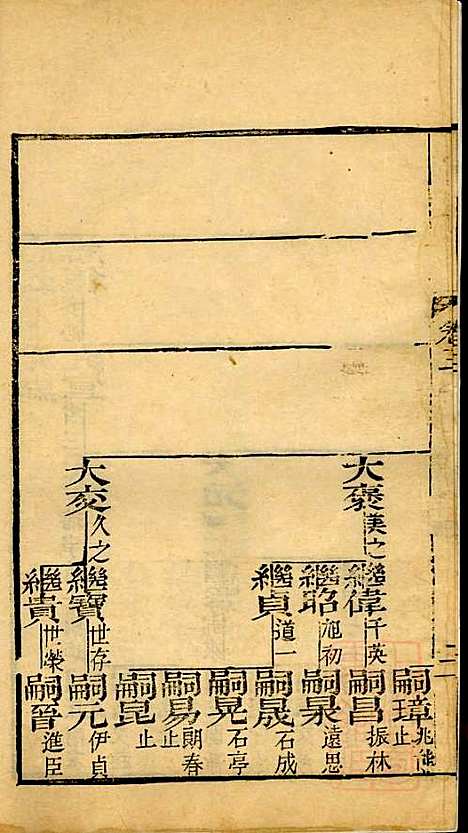 卷三
二
大褎 漢之
大交 久之
繼偉 千英
繼昭 旭初
繼貞 道一
繼寶 世存
繼貴 世榮
嗣璋 止
嗣昌 振林
嗣杲 遠思
嗣晟 石成
嗣晃 石亭
嗣易 朗春 止
嗣昆 止
嗣元 伊貞
嗣晉 進臣